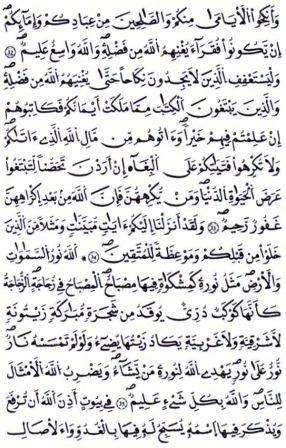 وَأَنكِحُوا الْأَيَامَىٰ مِنكُمْ وَالصَّالِحِينَ مِنْ عِبَادِكُمْ وَإِمَائِكُمْ
إِن يَكُونُوا فُقَرَاءَ يُغْنِهِمُ اللَّهُ مِن فَضْلِهِ وَاللَّهُ وَاسِعٌ عَلِيمٌ
وَلْيَسْتَعْفِفِ الَّذِينَ لَا يَجِدُونَ نِكَاحًا حَتَّىٰ يُغْنِيَهُمُ اللَّهُ مِن فَضْلِهِ
وَالَّذِينَ يَبْتَغُونَ الْكِتَٰبَ مِمَّا مَلَكَتْ أَيْمَانُكُمْ فَكَاتِبُوهُمْ
إِنْ عَلِمْتُمْ فِيهِمْ خَيْرًا وَءَاتُوهُم مِّن مَّالِ اللَّهِ الَّذِي ءَاتَاكُمْ
وَلَا تُكْرِهُوا فَتَيَاتِكُمْ عَلَى الْبِغَاءِ إِنْ أَرَدْنَ تَحَصُّنًا لِّتَبْتَغُوا
عَرَضَ الْحَيَوٰةِ الدُّنْيَا وَمَن يُكْرِههُّنَّ فَإِنَّ اللَّهَ مِن بَعْدِ إِكْرَاهِهِنَّ
غَفُورٌ رَّحِيمٌ وَلَقَدْ أَنزَلْنَا إِلَيْكُمْ ءَايَاتٍ مُّبَيِّنَاتٍ وَمَثَلًا مِّنَ الَّذِينَ
خَلَوْا مِن قَبْلِكُمْ وَمَوْعِظَةً لِّلْمُتَّقِينَ اللَّهُ نُورُ السَّمَٰوَٰتِ
وَالْأَرْضِ مَثَلُ نُورِهِ كَمِشْكَوٰةٍ فِيهَا مِصْبَاحٌ الْمِصْبَاحُ فِي زُجَاجَةٍ الزُّجَاجَةُ
كَأَنَّهَا كَوْكَبٌ دُرِّيٌّ يُوقَدُ مِن شَجَرَةٍ مُّبَٰرَكَةٍ زَيْتُونَةٍ
لَّا شَرْقِيَّةٍ وَلَا غَرْبِيَّةٍ يَكَادُ زَيْتُهَا يُضِيءُ وَلَوْ لَمْ تَمْسَسْهُ نَارٌ
نُّورٌ عَلَىٰ نُورٍ يَهْدِي اللَّهُ لِنُورِهِ مَن يَّشَاءُ وَيَضْرِبُ اللَّهُ الْأَمْثَالَ
لِلنَّاسِ وَاللَّهُ بِكُلِّ شَيْءٍ عَلِيمٌ فِي بُيُوتٍ أَذِنَ اللَّهُ أَن تُرْفَعَ
وَيُذْكَرَ فِيهَا اسْمُهُ يُسَبِّحُ لَهُ فِيهَا بِالْغُدُوِّ وَالْءَاصَالِ